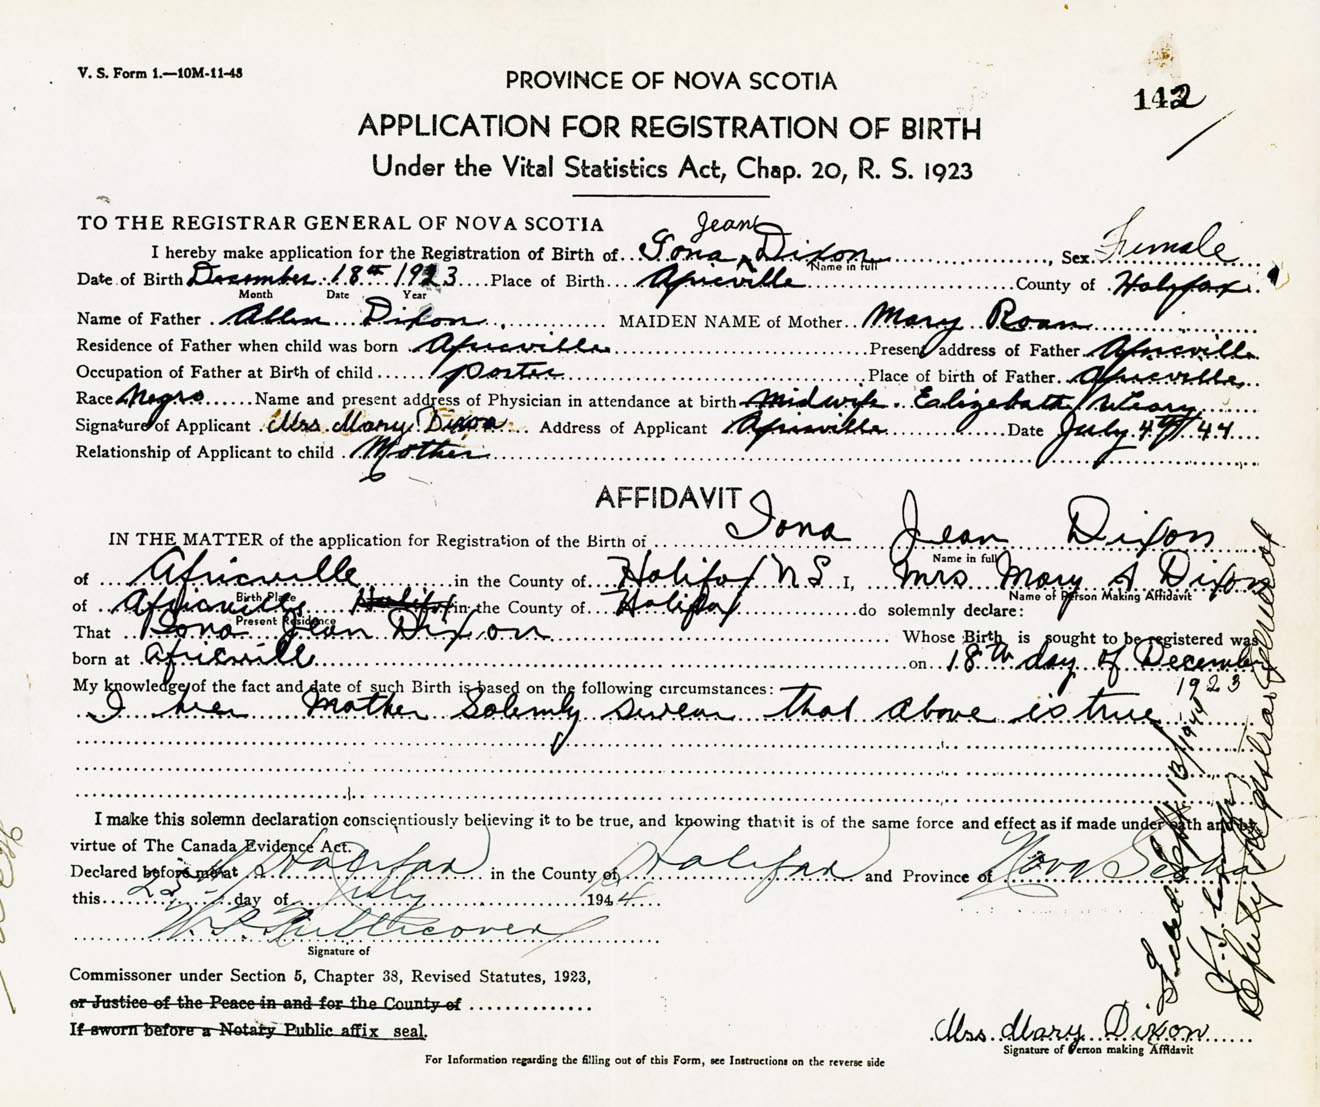 V. S. Form 1.—10M-11-43
PROVINCE OF NOVA SCOTIA
142
APPLICATION FOR REGISTRATION OF BIRTH
Under the Vital Statistics Act, Chap. 20, R. S. 1923
TO THE REGISTRAR GENERAL OF NOVA SCOTIA
Jean
I hereby make application for the Registration of Birth of Iona Dixon, Sex Female
Name in full
Date of Birth December 18th 1923 Place of Birth Africville County of Halifax
Month Date Year
Name of Father Allen Dixon MAIDEN NAME of Mother Mary Roan
Residence of Father when child was born Africville Present address of Father Africville
Occupation of Father at Birth of child porter Place of birth of Father Africville
Race Negro Name and present address of Physician in attendance at birth midwife Elizabeth
Signature of Applicant Mrs. Mary Dixon Address of Applicant Africville Date July 4th/44
Relationship of Applicant to child Mother
AFFIDAVIT
IN THE MATTER of the application for Registration of the Birth of Iona Jean Dixon
Name in full
of Africville in the County of Halifax NS I, Mrs Mary A Dixon
Birth Place Name of Person Making Affidavit
of Africville Halifax in the County of Halifax do solemnly declare:
Present Residence
That Iona Jean Dixon Whose Birth is sought to be registered was
born at Africville on 18th day of December
1923
My knowledge of the fact and date of such Birth is based on the following circumstances:
I her Mother Solemly swear that above is true
I make this solemn declaration conscientiously believing it to be true, and knowing that it is of the same force and effect as if made under oath and by
virtue of The Canada Evidence Act.
Declared before me at Halifax in the County of Halifax and Province of Nova Scotia
this 25 day of July 1944
Signature of
Commissoner under Section 5, Chapter 38, Revised Statutes, 1923,
or Justice of the Peace in and for the County of
If sworn before a Notary Public affix seal.
Mrs. Mary Dixon
Signature of Person making Affidavit
For Information regarding the filling out of this Form, see Instructions on the reverse side
Filed Sept. 13/1944
Deputy Registrar General